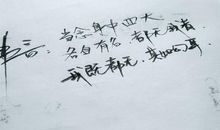 佛言：当念身中四大
各自有名，都无我者。
我既都无，其如幻耳